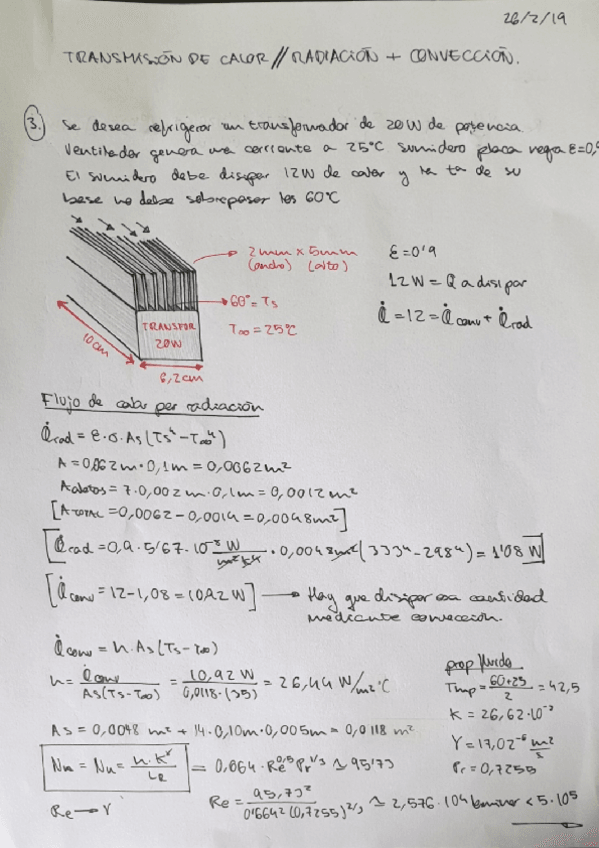 26/2/19
TRANSMISIÓN DE CALOR // RADIACIÓN + CONVECCIÓN.
3. Se desea refrigerar un transformador de 20W de potencia
Ventilador genera una corriente a 25°C sumidero placa negra ε=0,9
El sumidero debe disipar 12W de calor y la tª de su
base no debe sobrepasar los 60°C
2mm x 5mm
(ancho) (alto)
60º = Ts
T∞ = 25°C
TRANSFOR
20W
10cm
6,2cm
ε=0'9
12W = Q a disipar
Q̇ = 12 = Q̇conv + Q̇rad
Flujo de calor por radiación
Q̇rad = ε·σ·As(Ts⁴-T∞⁴)
A = 0,062m·0,1m = 0,0062m²
Aaletas = 7·0,002m·0,1m = 0,0012m²
[ATOTAL = 0,0062-0,0014 = 0,0048m²]
[Q̇rad = 0,9·5'67·10⁻⁸ W/m²K⁴ · 0,0048m²(333⁴-298⁴) = 1'08 W]
[Q̇conv = 12-1,08 = 10,92 W] → Hay que disipar esa cantidad
mediante convección.
Q̇conv = h·As(Ts-T∞)
h = Q̇conv/As(Ts-T∞) = 10,92 W/0,0118·(35) = 26,44 W/m²°C
As = 0,0048 m² + 14·0,10m·0,005m = 0,0118 m²
prop fluido
Tmp = 60+25/2 = 42,5
K = 26,62·10⁻³
γ = 17,02⁻⁶ m²/s
Pr = 0,7255
Nu = h·K/L = 0,664·Re^0,5 Pr^1/3 ≃ 95'73
Re → V
Re = 95,73²/0'664²(0,7255)^2/3 ≃ 2,576·10⁴ laminar < 5·10⁵